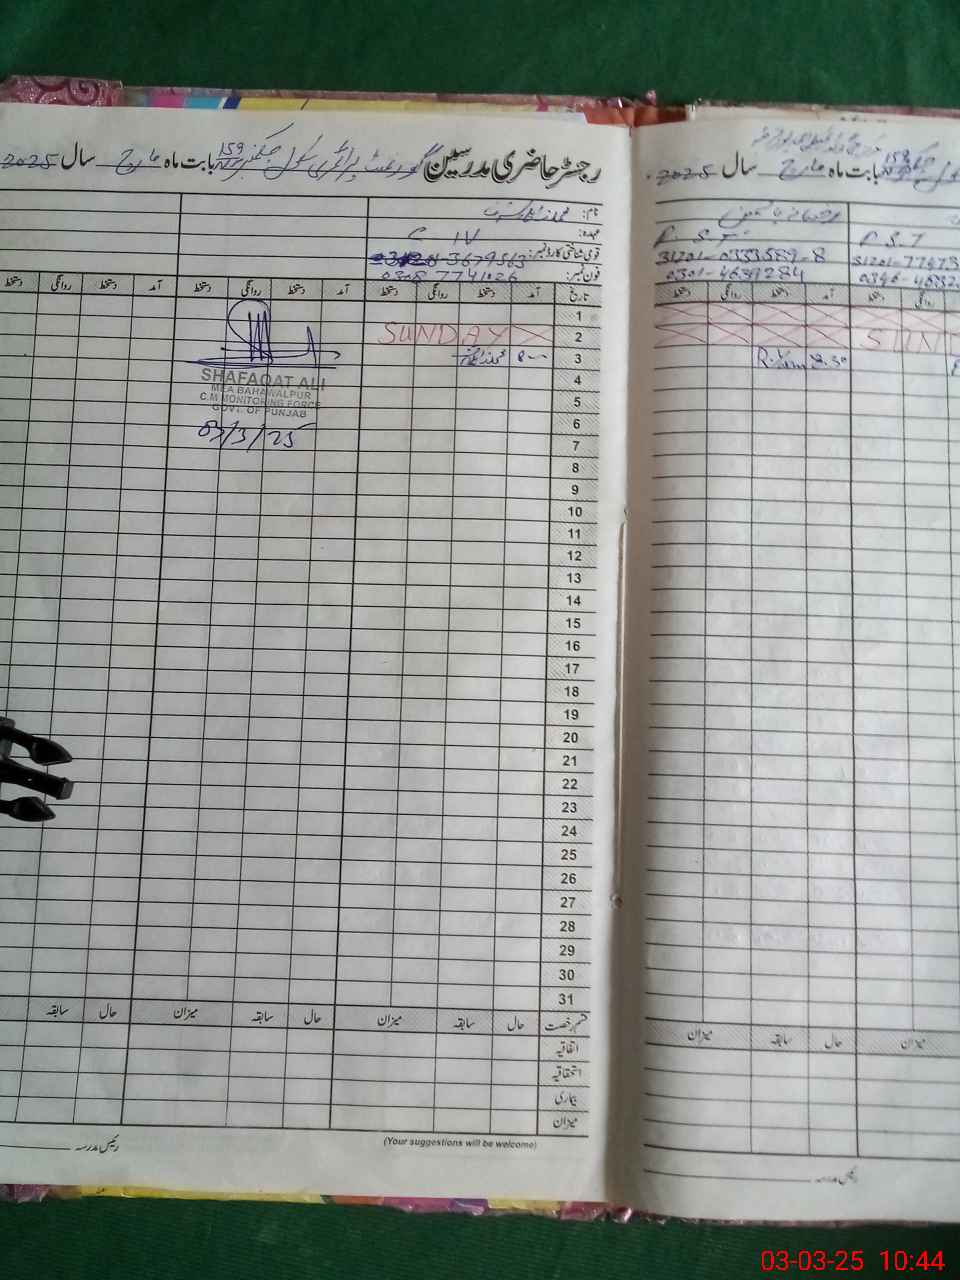 رجسٹر حاضری مدرسین گورنمنٹ پرائمری سکول 159 بابت ماہ مارچ سال 2025
نام:
عہدہ: C IV
قومی شناختی کارڈ نمبر: 3679563
فون نمبر: 0308 7741026
تاریخ آمد دستخط روانگی دستخط آمد دستخط روانگی دستخط آمد دستخط روانگی دستخط
1
2 SUNDAY
3
SHAFAQAT ALI
MEA BAHAWALPUR
C.M MONITORING FORCE
GOVT. OF PUNJAB
03/3/25
4
5
6
7
8
9
10
11
12
13
14
15
16
17
18
19
20
21
22
23
24
25
26
27
28
29
30
31
قسم رخصت حال سابقہ میزان حال سابقہ میزان حال سابقہ
اتفاقیہ
استحقاقیہ
بیماری
میزان
(Your suggestions will be welcome)
رئیس مدرسہ
159 بابت ماہ مارچ سال 2025
P.S.T
31201-0333589-8 31201-77473
0301-4639284
دستخط روانگی دستخط آمد دستخط روانگی
SUN
8:30
میزان سابقہ حال میزان
رئیس مدرسہ
03-03-25 10:44